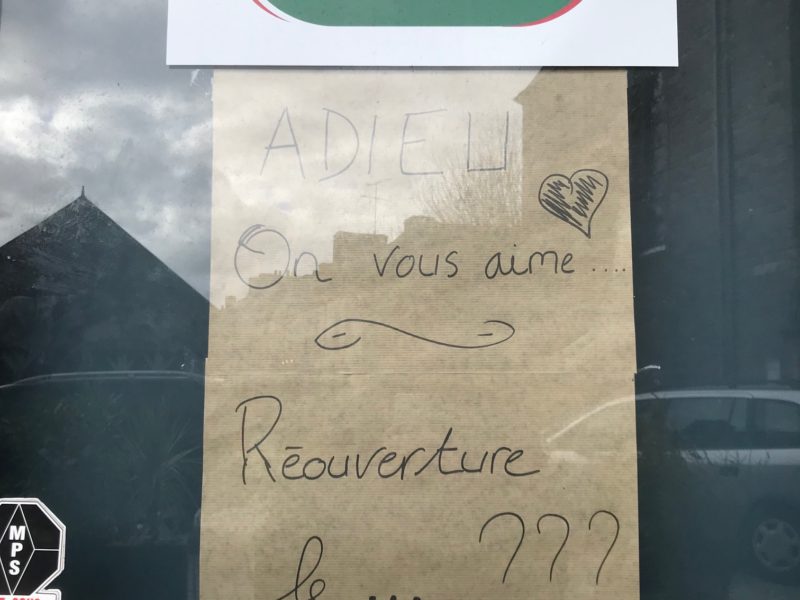 ADIEU
On vous aime ....
Réouverture
???
le ...
MPS